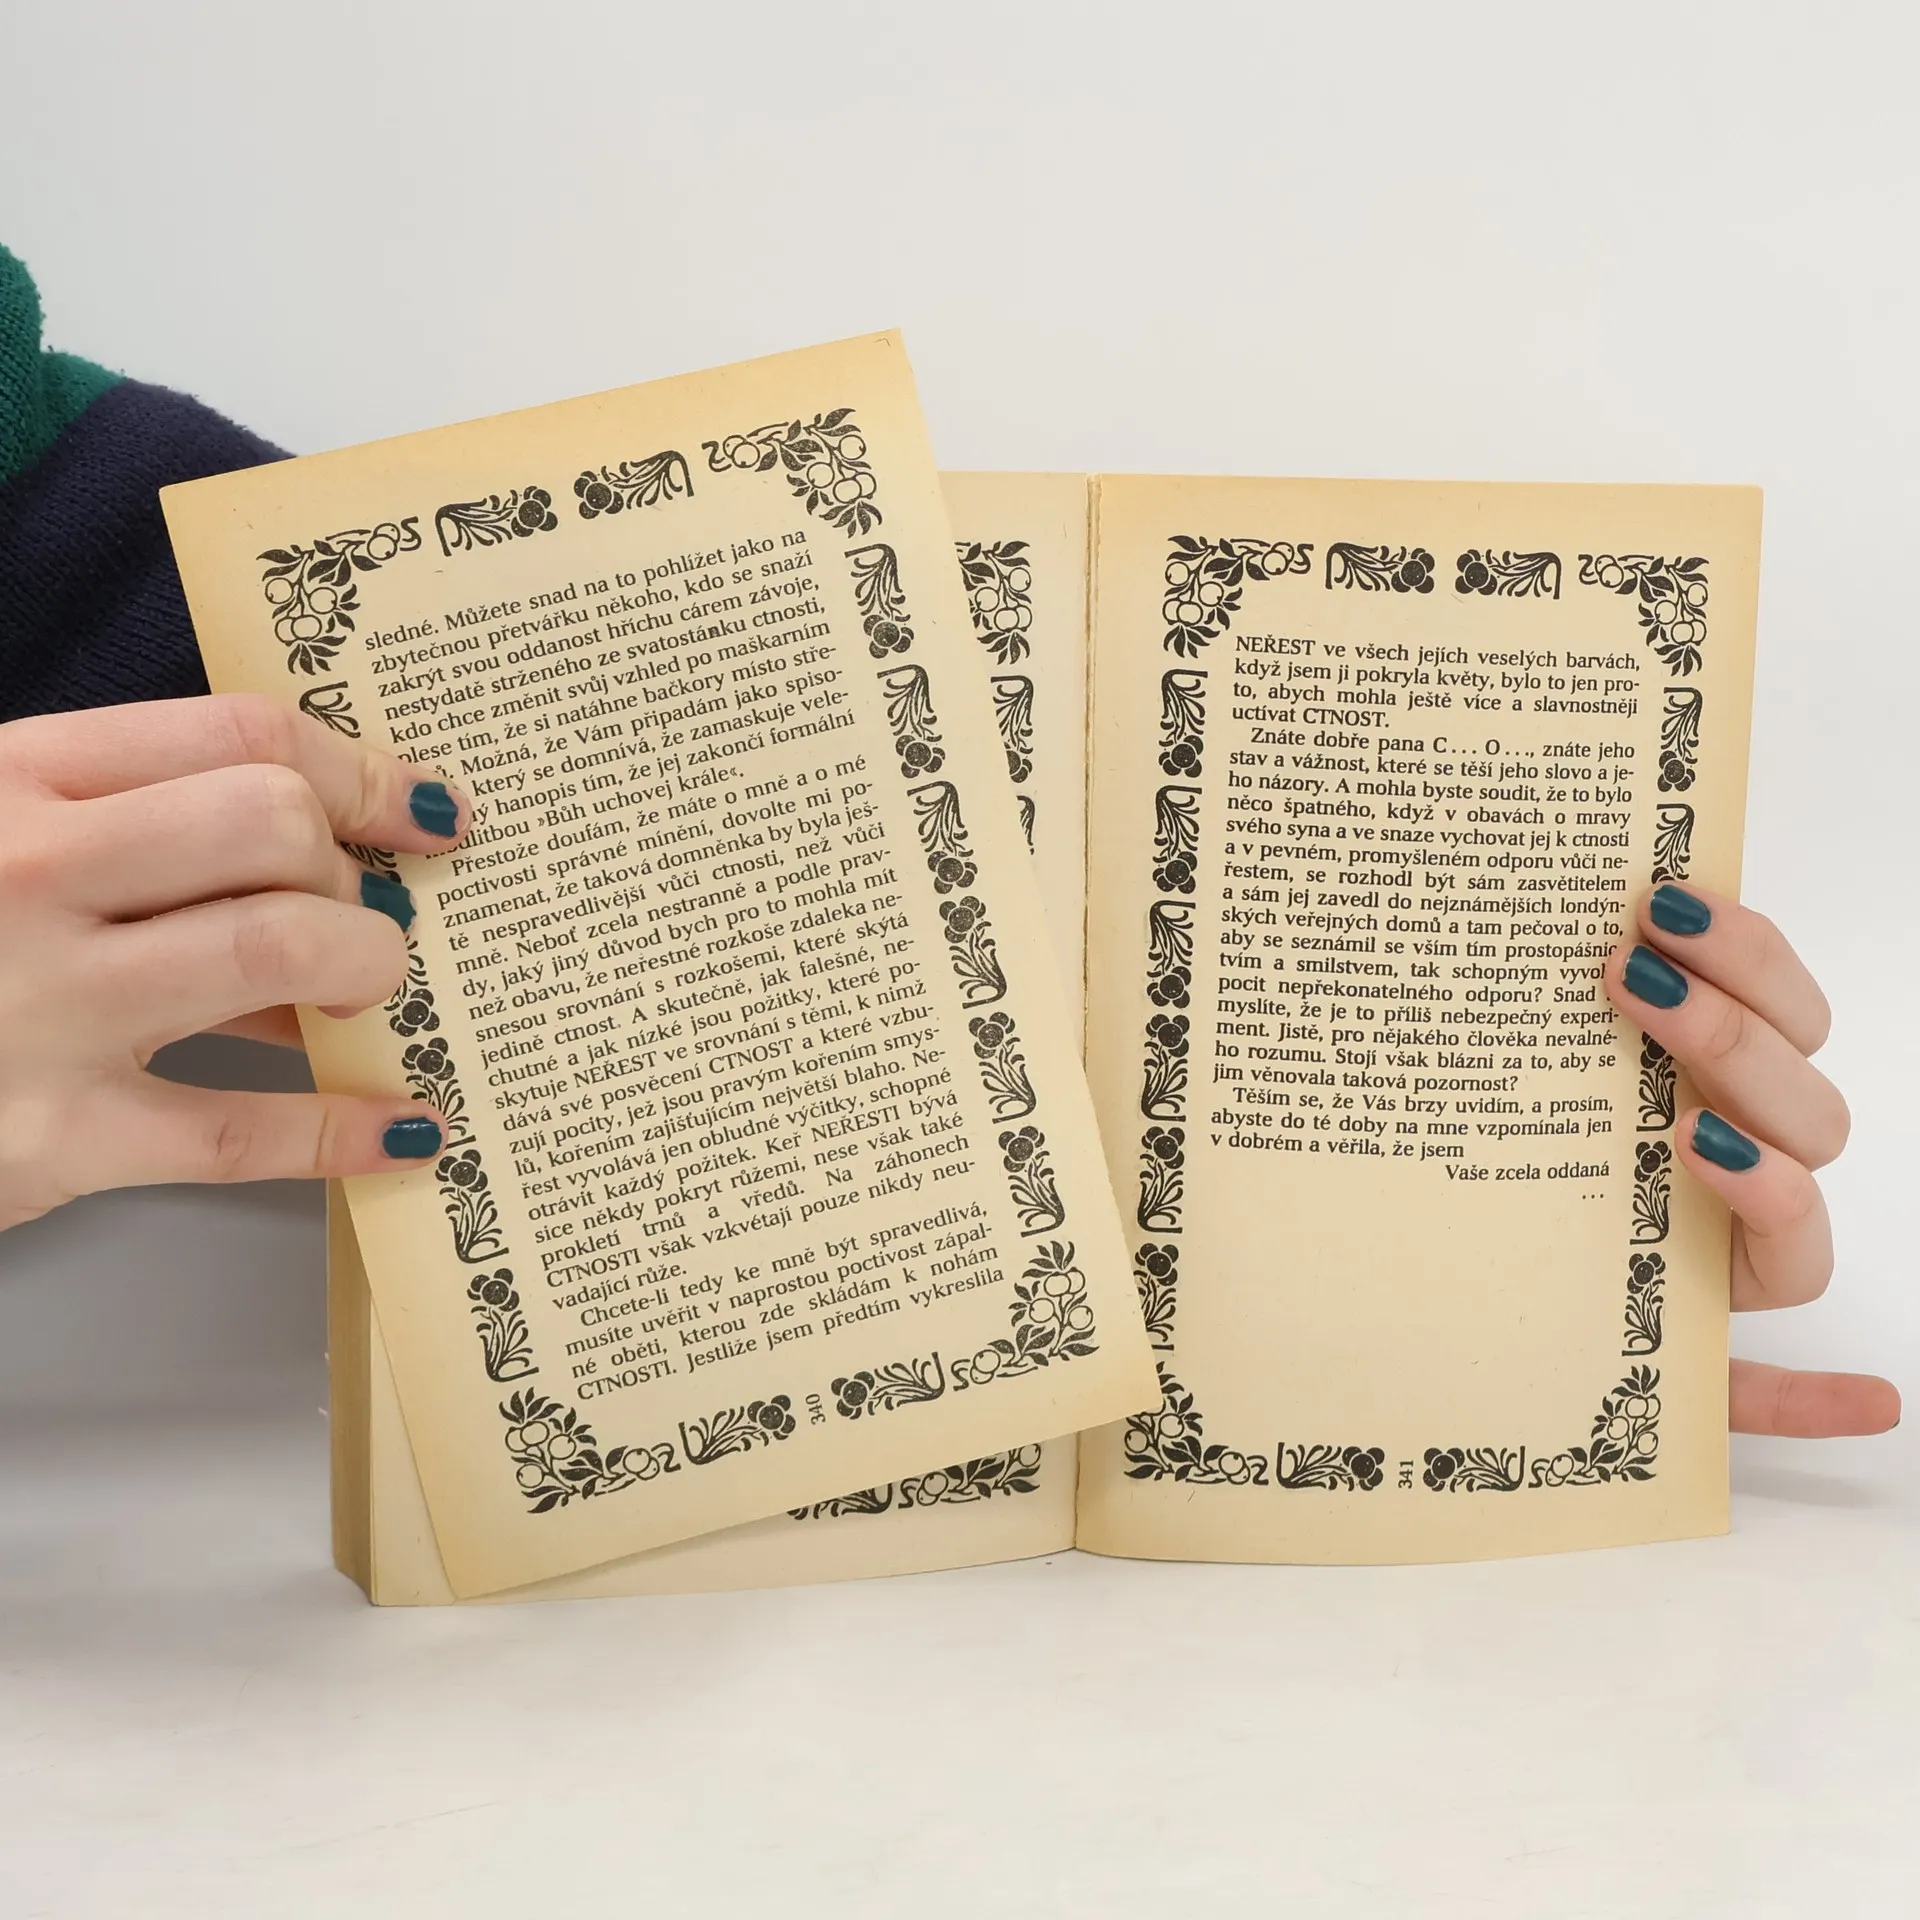 sledné. Můžete snad na to pohlížet jako na
zbytečnou přetvářku někoho, kdo se snaží
zakrýt svou oddanost hříchu cárem závoje,
nestydatě strženého ze svatostánku ctnosti,
kdo chce změnit svůj vzhled po maškarním
plese tím, že si natáhne bačkory místo stře-
Možná, že Vám připadám jako spiso-
který se domnívá, že zamaskuje vele-
hanopis tím, že jej zakončí formální
modlitbou »Bůh uchovej krále«.
Přestože doufám, že máte o mně a o mé
poctivosti správné mínění, dovolte mi po-
znamenat, že taková domněnka by byla ješ-
tě nespravedlivější vůči ctnosti, než vůči
mně. Neboť zcela nestranně a podle prav-
dy, jaký jiný důvod bych pro to mohla mít
než obavu, že neřestné rozkoše zdaleka ne-
snesou srovnání s rozkošemi, které skýtá
jedině ctnost. A skutečně, jak falešné, ne-
chutné a jak nízké jsou požitky, které po-
skytuje NEŘEST ve srovnání s těmi, k nimž
dává své posvěcení CTNOST a které vzbu-
zují pocity, jež jsou pravým kořením smys-
lů, kořením zajišťujícím největší blaho. Ne-
řest vyvolává jen obludné výčitky, schopné
otrávit každý požitek. Keř NEŘESTI bývá
sice někdy pokryt růžemi, nese však také
prokletí trnů a vředů. Na záhonech
CTNOSTI však vzkvétají pouze nikdy neu-
vadající růže.
Chcete-li tedy ke mně být spravedlivá,
musíte uvěřit v naprostou poctivost zápal-
né oběti, kterou zde skládám k nohám
CTNOSTI. Jestliže jsem předtím vykreslila
340
NEŘEST ve všech jejích veselých barvách,
když jsem ji pokryla květy, bylo to jen pro-
to, abych mohla ještě více a slavnostněji
uctívat CTNOST.
Znáte dobře pana C... O..., znáte jeho
stav a vážnost, které se těší jeho slovo a je-
ho názory. A mohla byste soudit, že to bylo
něco špatného, když v obavách o mravy
svého syna a ve snaze vychovat jej k ctnosti
a v pevném, promyšleném odporu vůči ne-
řestem, se rozhodl být sám zasvětitelem
a sám jej zavedl do nejznámějších londýn-
ských veřejných domů a tam pečoval o to,
aby se seznámil se vším tím prostopášnic
tvím a smilstvem, tak schopným vyvol
pocit nepřekonatelného odporu? Snad
myslíte, že je to příliš nebezpečný experi-
ment. Jistě, pro nějakého člověka nevalné-
ho rozumu. Stojí však blázni za to, aby se
jim věnovala taková pozornost?
Těším se, že Vás brzy uvidím, a prosím,
abyste do té doby na mne vzpomínala jen
v dobrém a věřila, že jsem
Vaše zcela oddaná
...
341